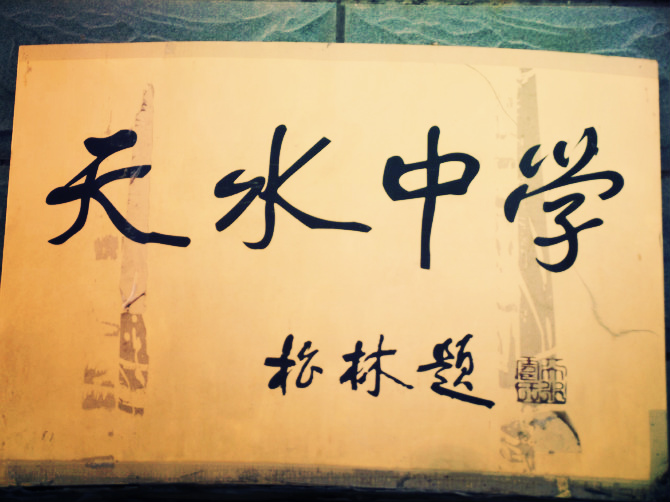 天水中学
松林题